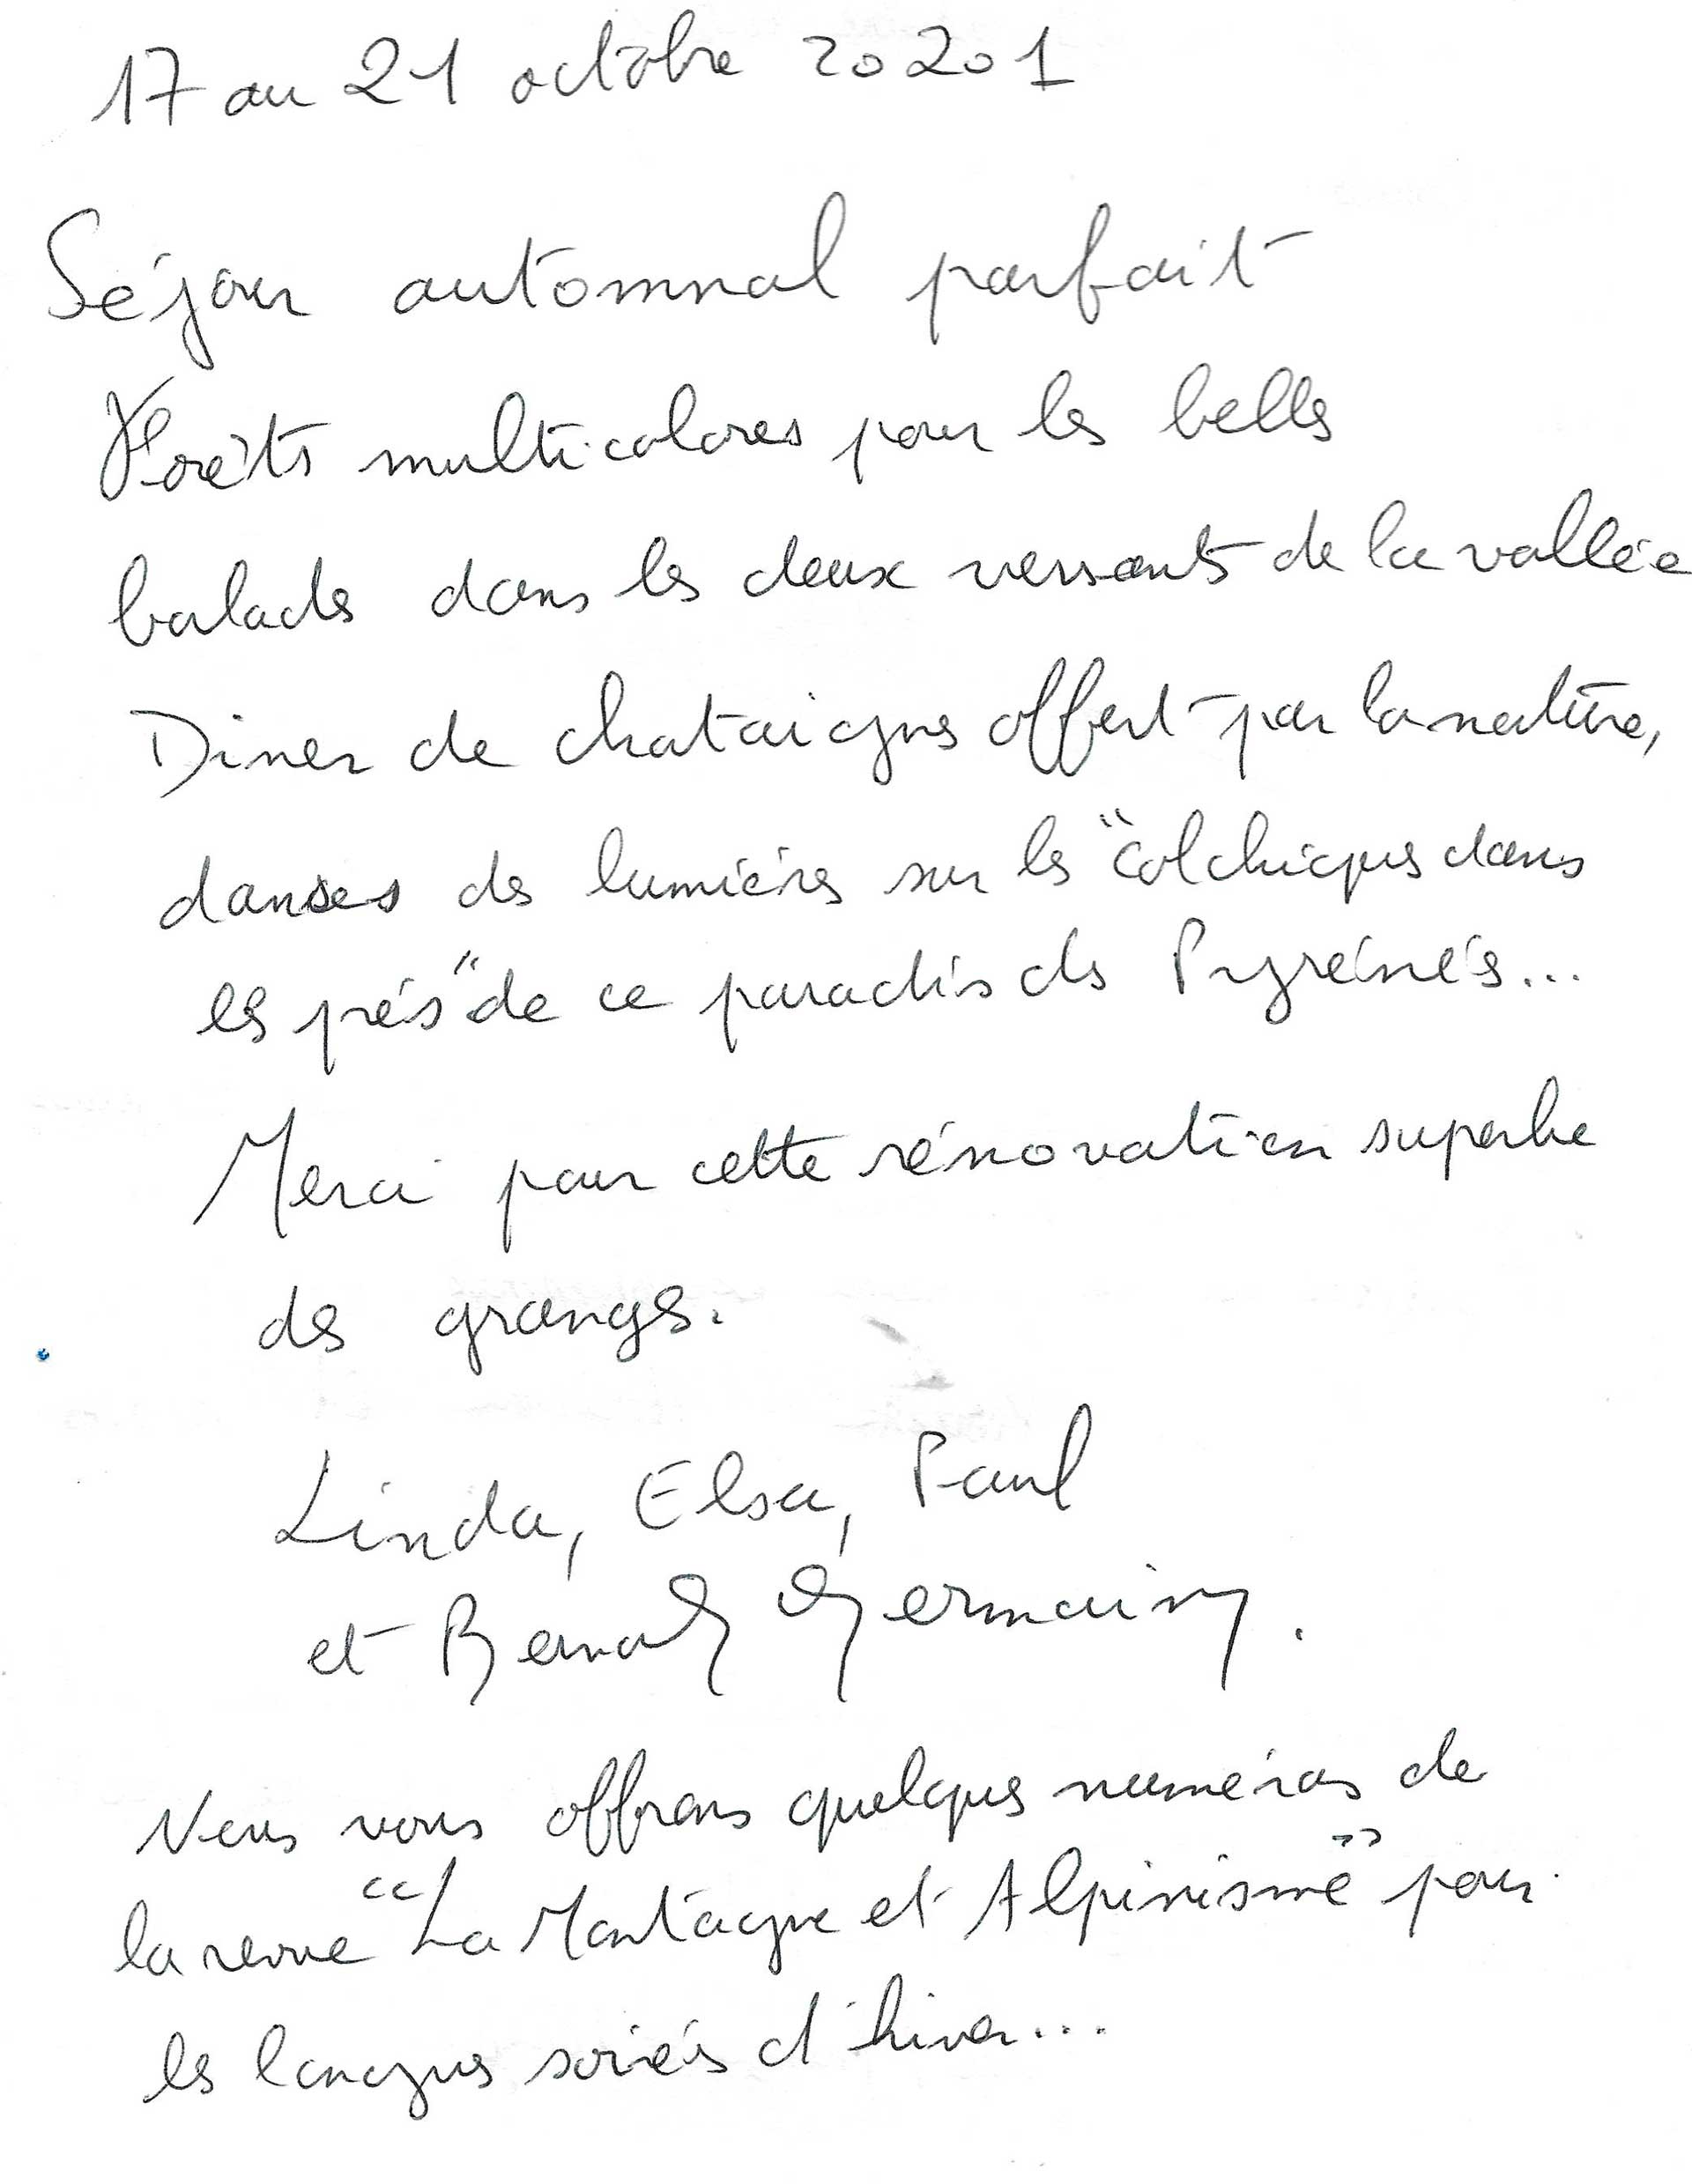 17 au 21 octobre 20201
Séjour automnal parfait
Forêts multicolores pour les belles
balades dans les deux versants de la vallée
Diner de chataignes offert par la nature,
danses des lumières sur les "colchiques dans
les prés" de ce paradis des Pyrénées...
Merci pour cette rénovation superbe
des granges.
Linda, Elsa, Paul
et Bernard Germain.
Nous vous offrons quelques numéros de
la revue "La Montagne et Alpinisme" pour
les longues soirées d'hiver...